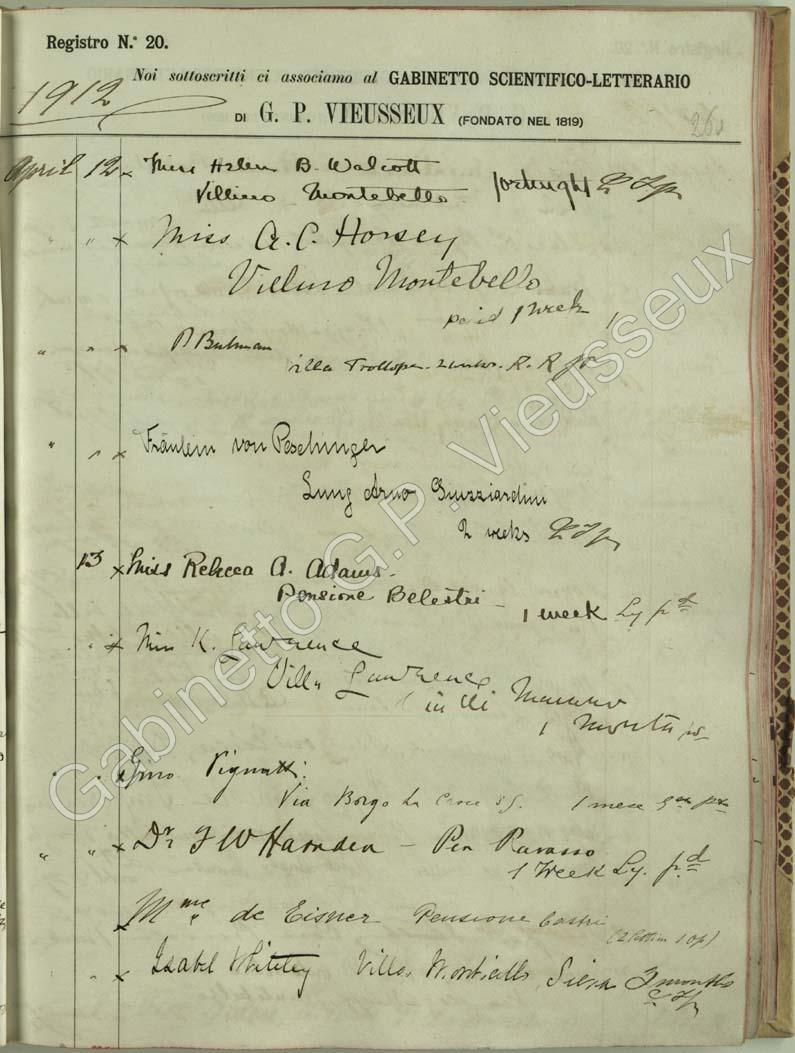 Registro N.° 20.
Noi sottoscritti ci associamo al GABINETTO SCIENTIFICO-LETTERARIO
1912
DI G. P. VIEUSSEUX (FONDATO NEL 1819)
260
April 12 x Miss Helen B. Walcott
Villino Montebello fortnight
" " x Miss A. C. Horsey
Villino Montebello
paid 1 Week
" " x
Villa Trollope
" " x Fräulein von Peschinger
Lung Arno Giuzziardini
2 weeks
13 x Miss Rebecca A. Adams.
Pensione Belestri - 1 week Ly pd
" x Miss K. Lawrence
Villa Lawrence
1 Month pd
" " x Gino Vignatti.
Via Borgo La Croce 1 mese
" " x Dr F W Harnden - Pen
1 Week Ly. pd
x Mme de Eisner Pensione Castri
" x Isabel Whiteley Villa Monticello, Siena 3 months
Gabinetto G.P. Vieusseux